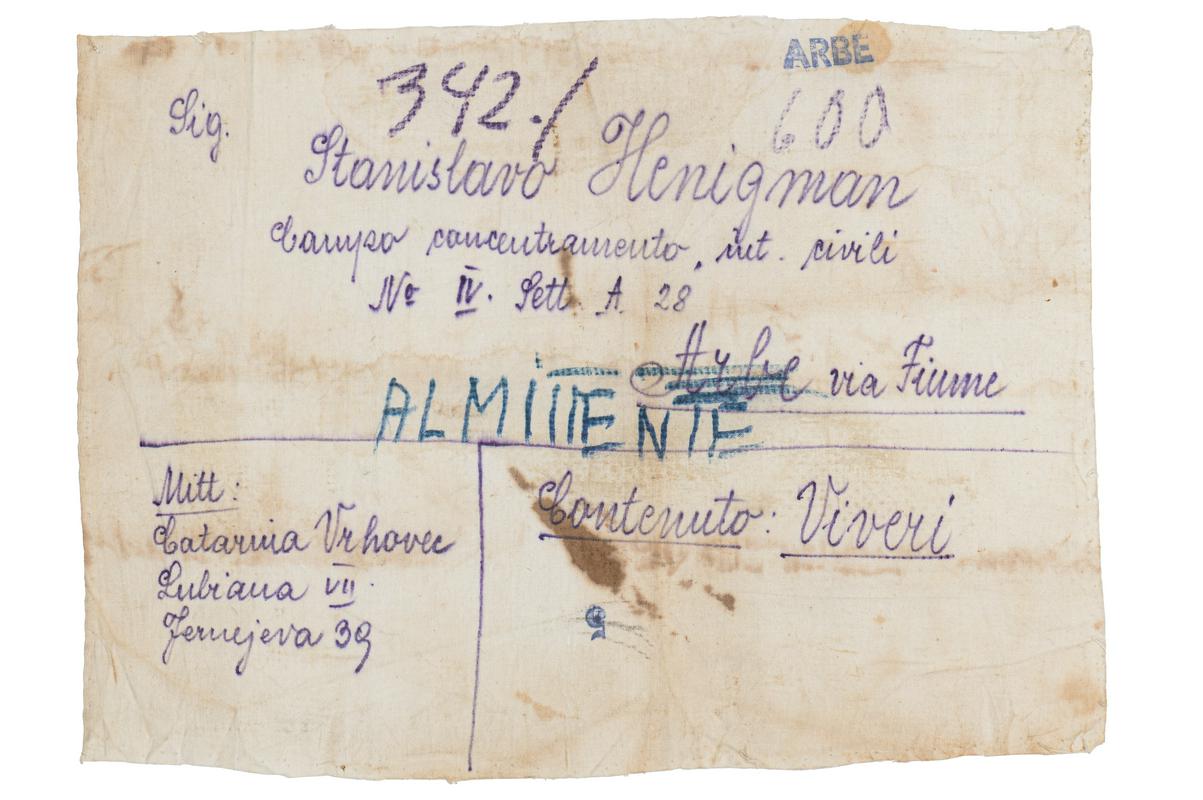 ARBE
342./
600
Sig.
Stanislavo Henigman
Campo concentramento, int. civili
No IV. Sett. A 28
Arbe via Fiume
AL MITTENTE
Mitt:
Catarina Vrhovec
Lubiana VII.
Jernejeva 39
Contenuto: Viveri
9